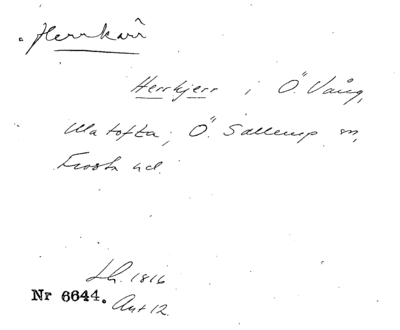 Herrkärr
Herrkjerr i Ö. Vång,
Ulatofta, Ö. Sallerup sn,
Frosta hd.
Lh. 1816
Nr 6644. Akt 12.